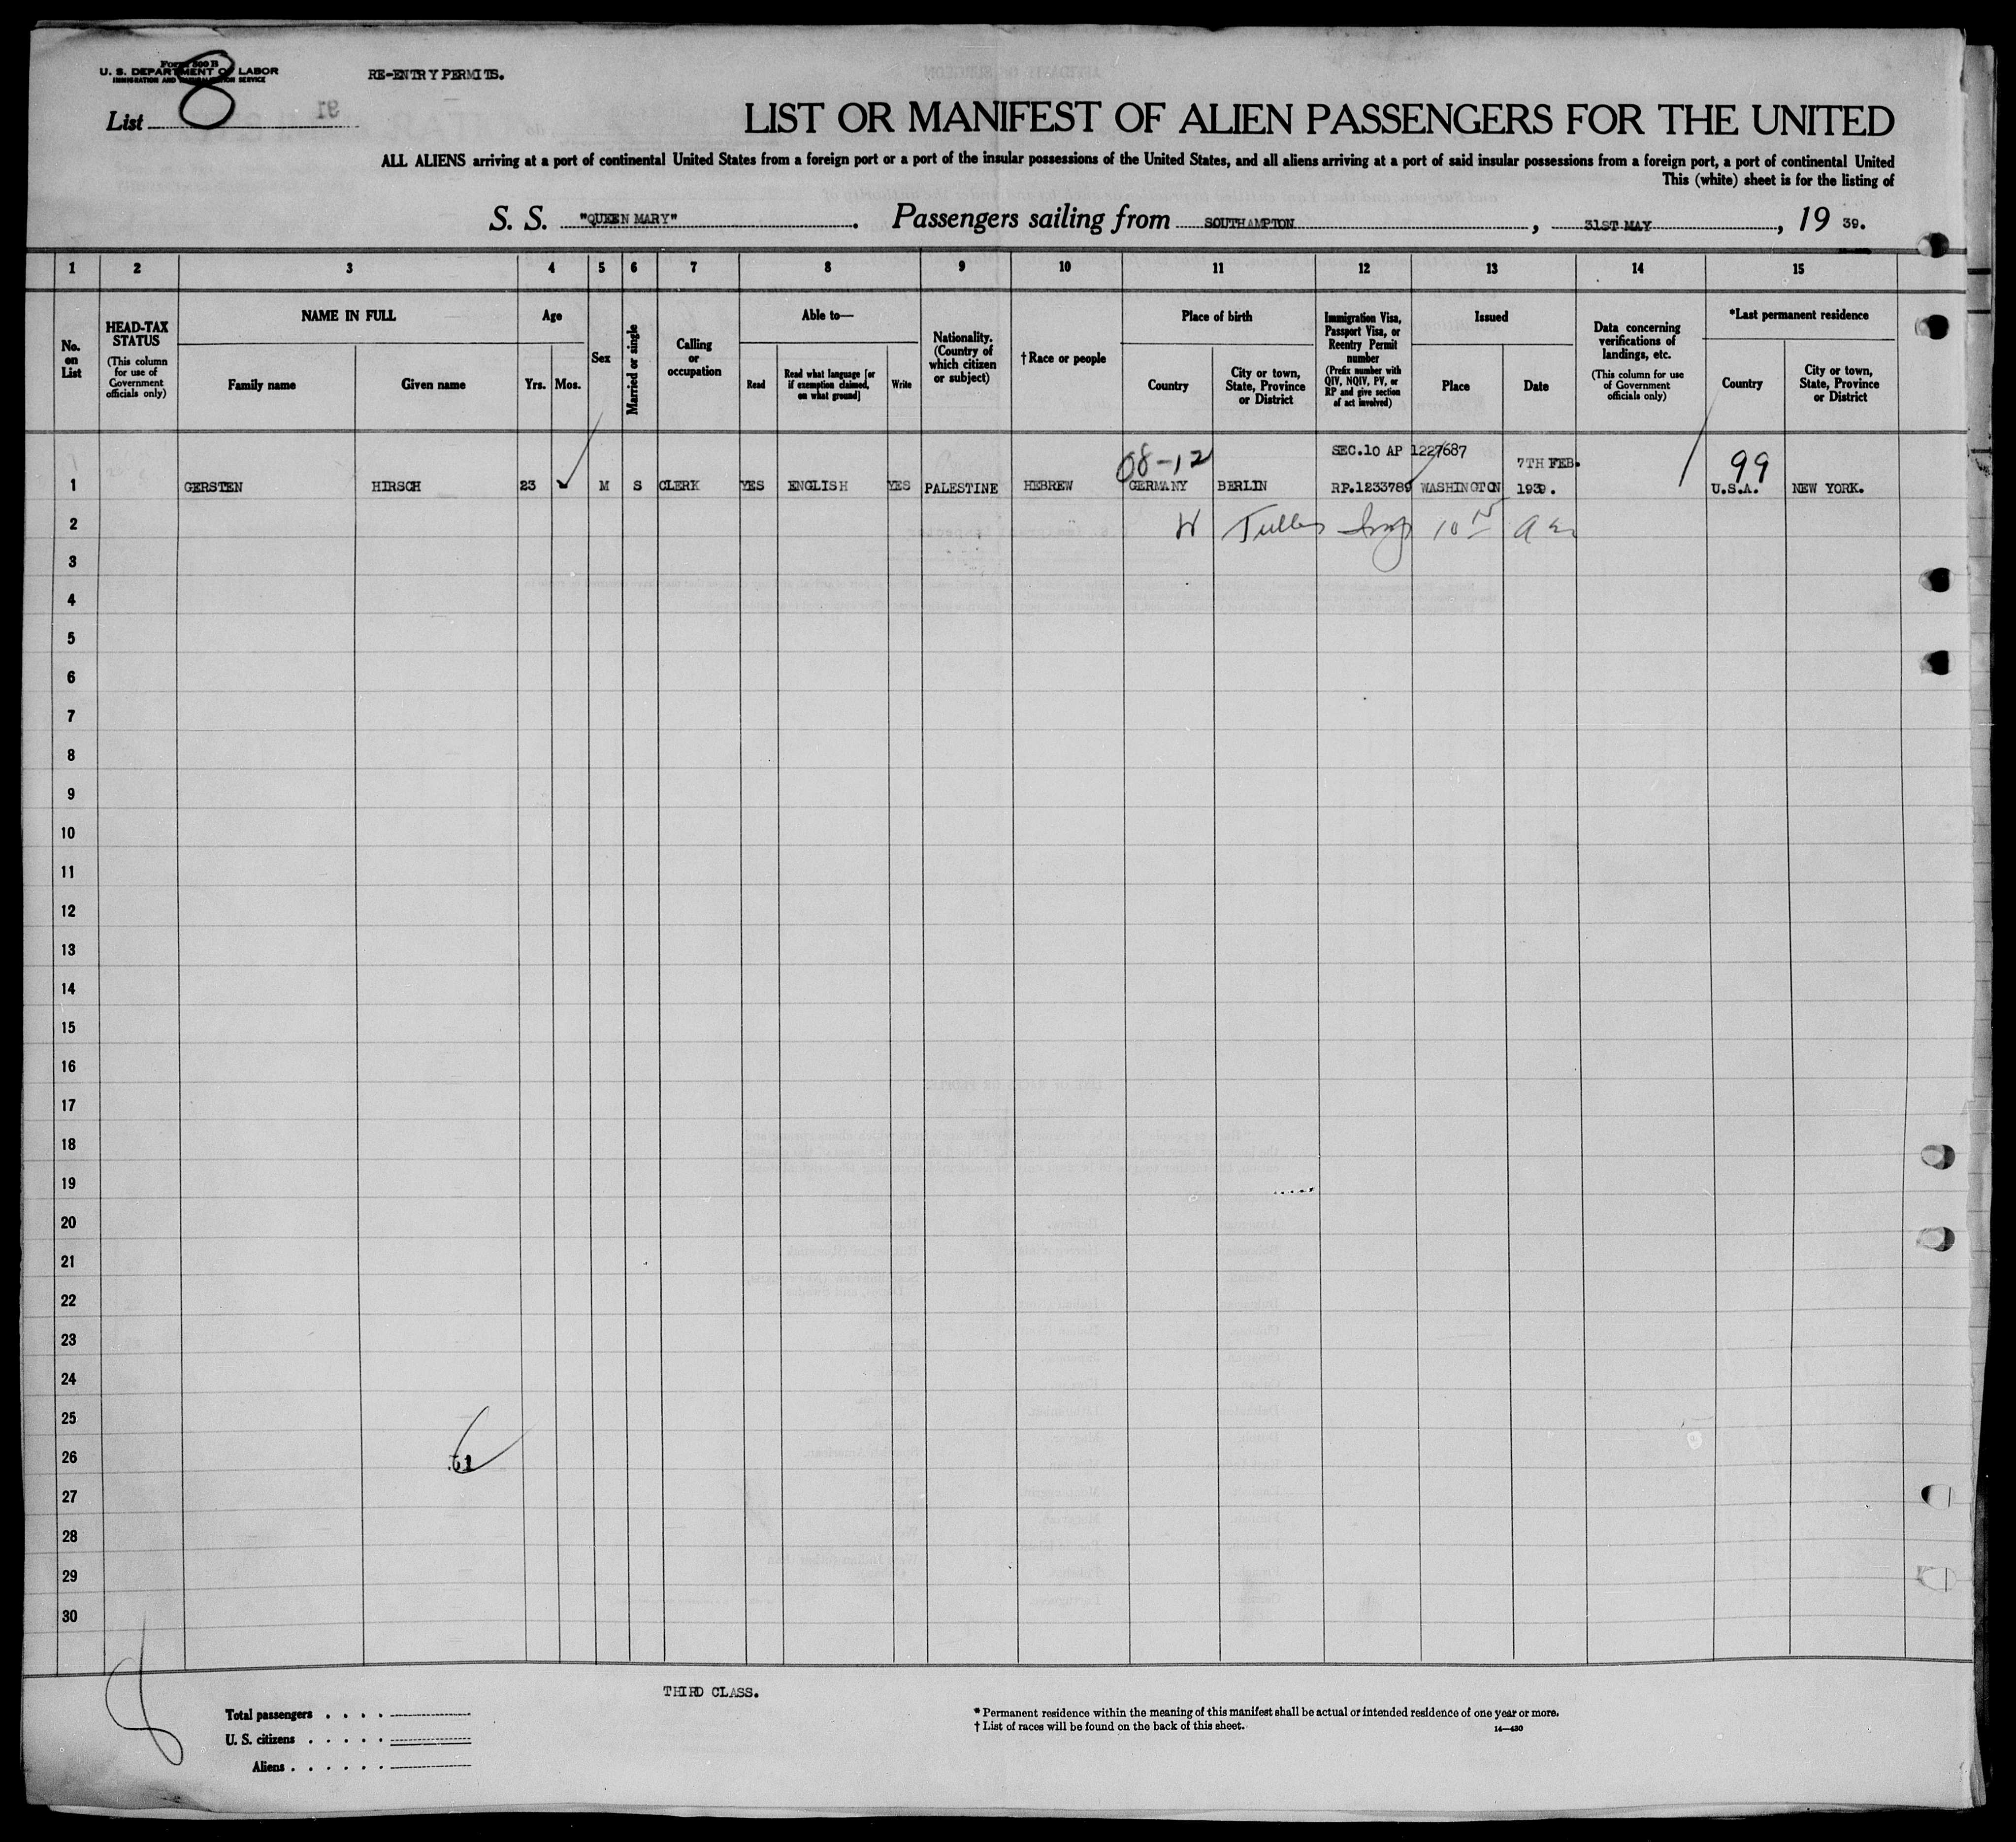 Form 500 B
U. S. DEPARTMENT OF LABOR
IMMIGRATION AND NATURALIZATION SERVICE
RE-ENTRY PERMITS.
List 8
LIST OR MANIFEST OF ALIEN PASSENGERS FOR THE UNITED
ALL ALIENS arriving at a port of continental United States from a foreign port or a port of the insular possessions of the United States, and all aliens arriving at a port of said insular possessions from a foreign port, a port of continental United
This (white) sheet is for the listing of
S. S. "QUEEN MARY". Passengers sailing from SOUTHAMPTON, 31ST MAY, 19 39.
1 2 3 4 5 6 7 8 9 10 11 12 13 14 15
No. on List
HEAD-TAX STATUS
(This column for use of Government officials only)
NAME IN FULL
Family name
Given name
Age
Yrs.
Mos.
Sex
Married or single
Calling or occupation
Able to—
Read
Read what language [or if exemption claimed, on what ground]
Write
Nationality. (Country of which citizen or subject)
†Race or people
Place of birth
Country
City or town, State, Province or District
Immigration Visa, Passport Visa, or Reentry Permit number
(Prefix number with QIV, NQIV, PV, or RP and give section of act involved)
Issued
Place
Date
Data concerning verifications of landings, etc.
(This column for use of Government officials only)
*Last permanent residence
Country
City or town, State, Province or District
08-12 SEC.10 AP 1227687 7TH FEB. 99
1 GERSTEN HIRSCH 23 M S CLERK YES ENGLISH YES PALESTINE HEBREW GERMANY BERLIN RP.1233789 WASHINGTON 1939. U.S.A. NEW YORK.
2
3
4
5
6
7
8
9
10
11
12
13
14
15
16
17
18
19
20
21
22
23
24
25
26
27
28
29
30
8
THIRD CLASS.
Total passengers . . . .
U. S. citizens . . . . .
Aliens . . . . . .
* Permanent residence within the meaning of this manifest shall be actual or intended residence of one year or more.
† List of races will be found on the back of this sheet.
14—430